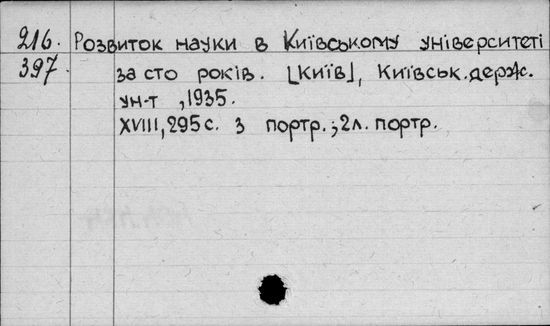 216. Розвиток науки в Київському університеті
397. за сто років. [Київ], Київськ. держ.
ун-т, 1935.
XVIII, 295 с. з портр.; 2 л. портр.